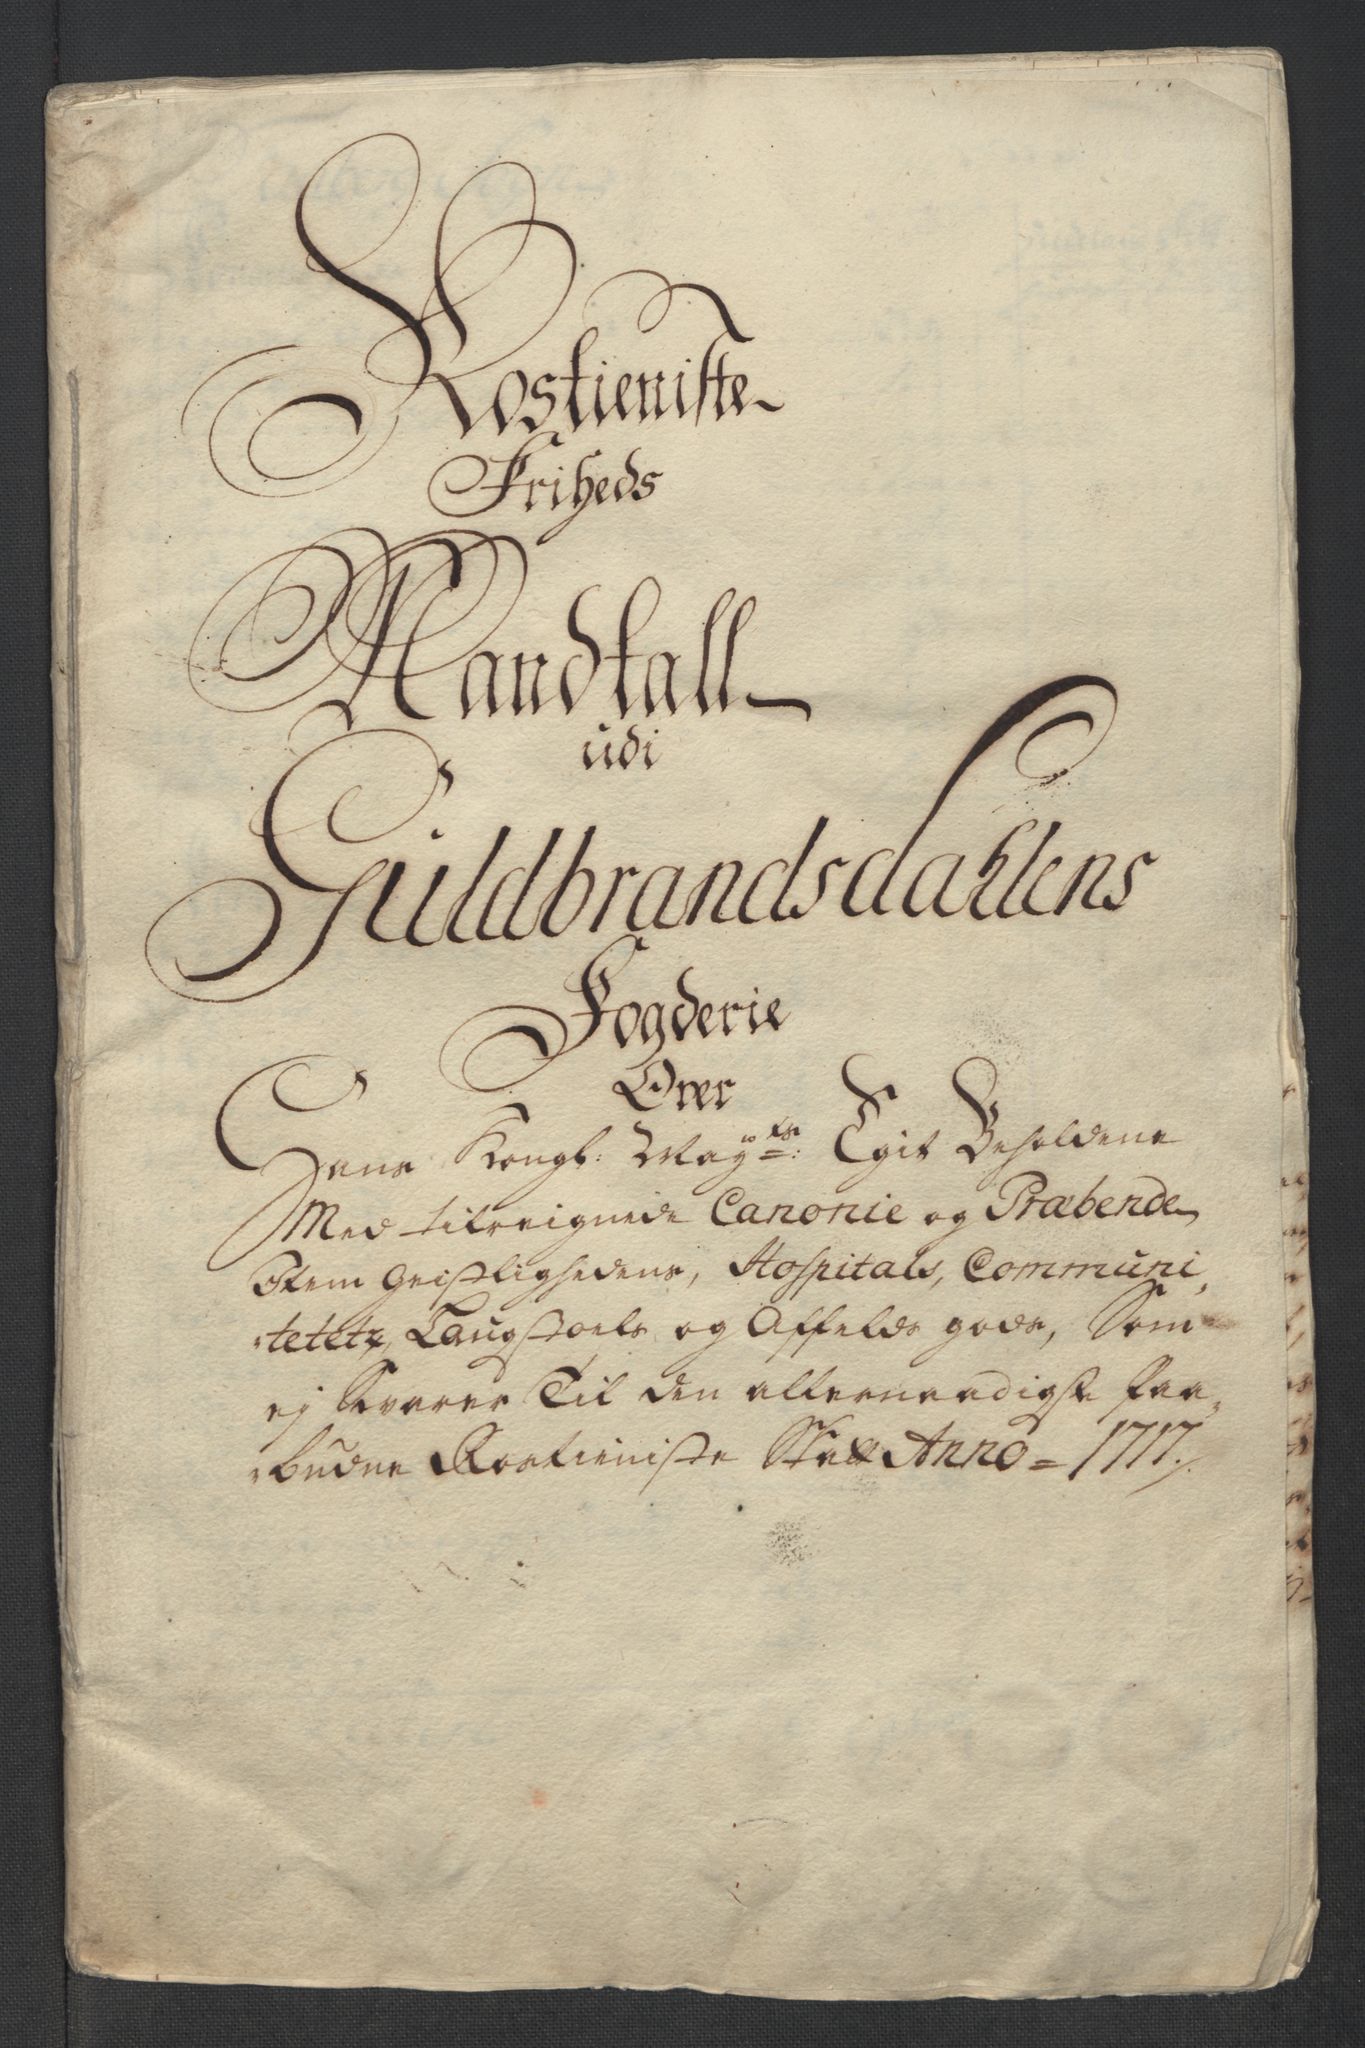 Rostieniste
Friheds
Mandtall
udi
Guldbrandsdahlens
Fogderie
Over
Hans Kongl: May:ts: Egit Beholdene
Med tilreignede Canonie og Præbende
Item Geistlighedens, Hospitals, Communi,
,tetetz, Laugstoels og Affelds gods, Som
ej Svarer Til den allernaadigste paa,
,budne Rostieniste Skatt Anno = 1717.